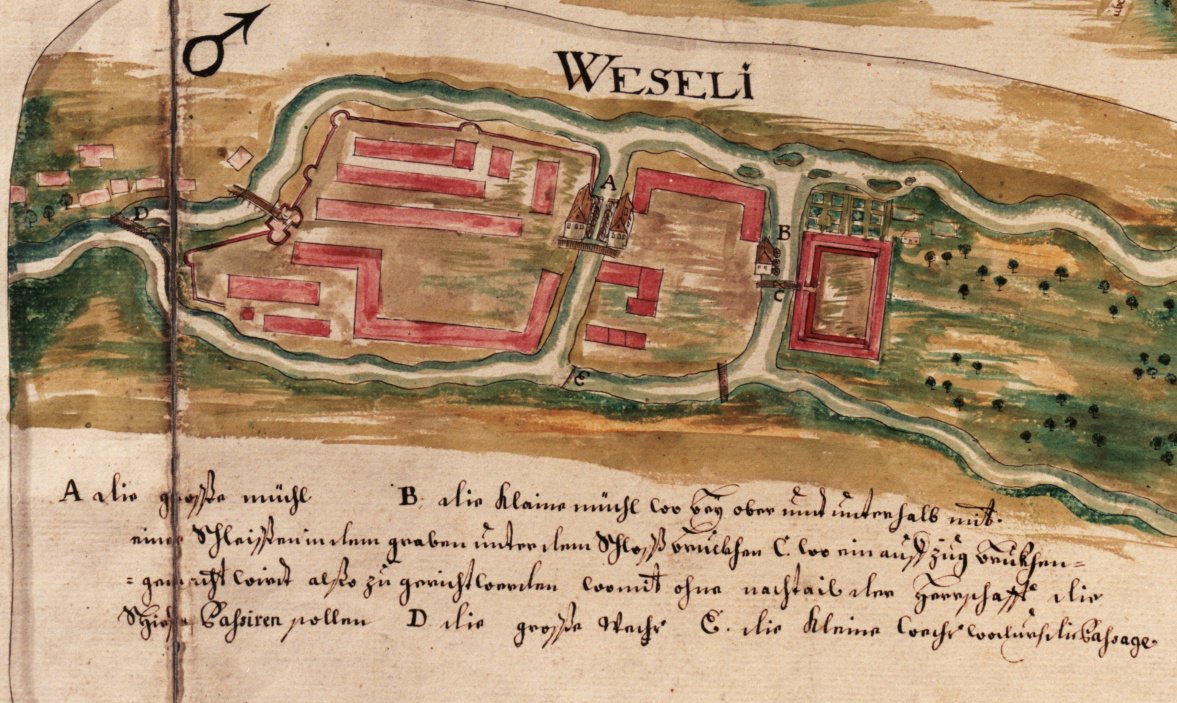 WESELI
A
B
C
D
E
A die große mühl B. die Kleine mühl wo bey ober und unterhalb mit.
einer Schleißen in dem graben unter dem Schloß bruckhen C. wo ein auff zug brukhen=
=gemacht wird alßo zu gericht werden womit ohne nachtail der Herrschafft die
Schiffe Passiren sollen D die große Wehr E. die Kleine Woehr wodurch die Pahsage.